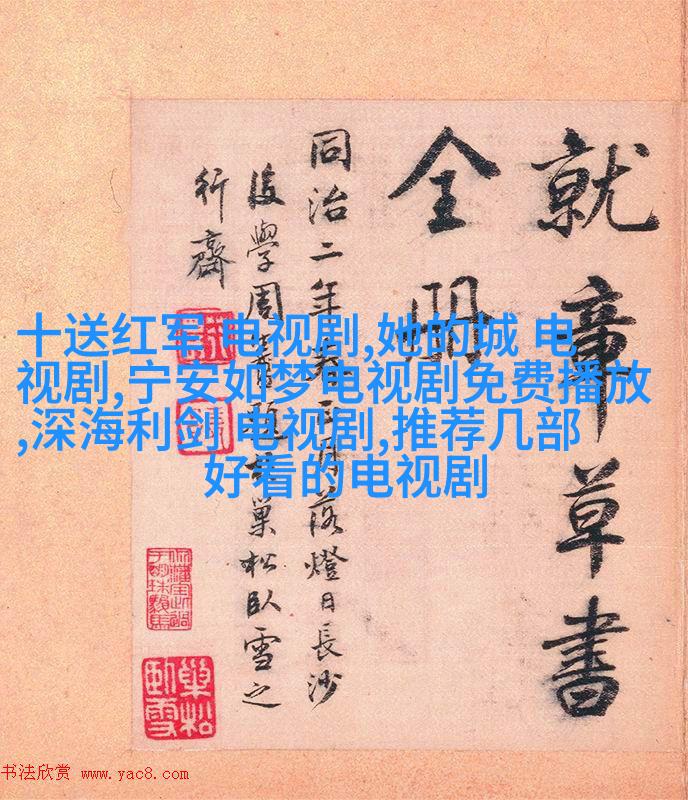 就章草書
全冊
同治二年春正月落燈日長沙
後學周壽題巢松臥雪之
行齋
十送红军 电视剧,她的城 电
视剧,宁安如梦电视剧免费播放
,深海利剑 电视剧,推荐几部
好看的电视剧
巢松
臥雪
书法欣赏 www.yac8.com